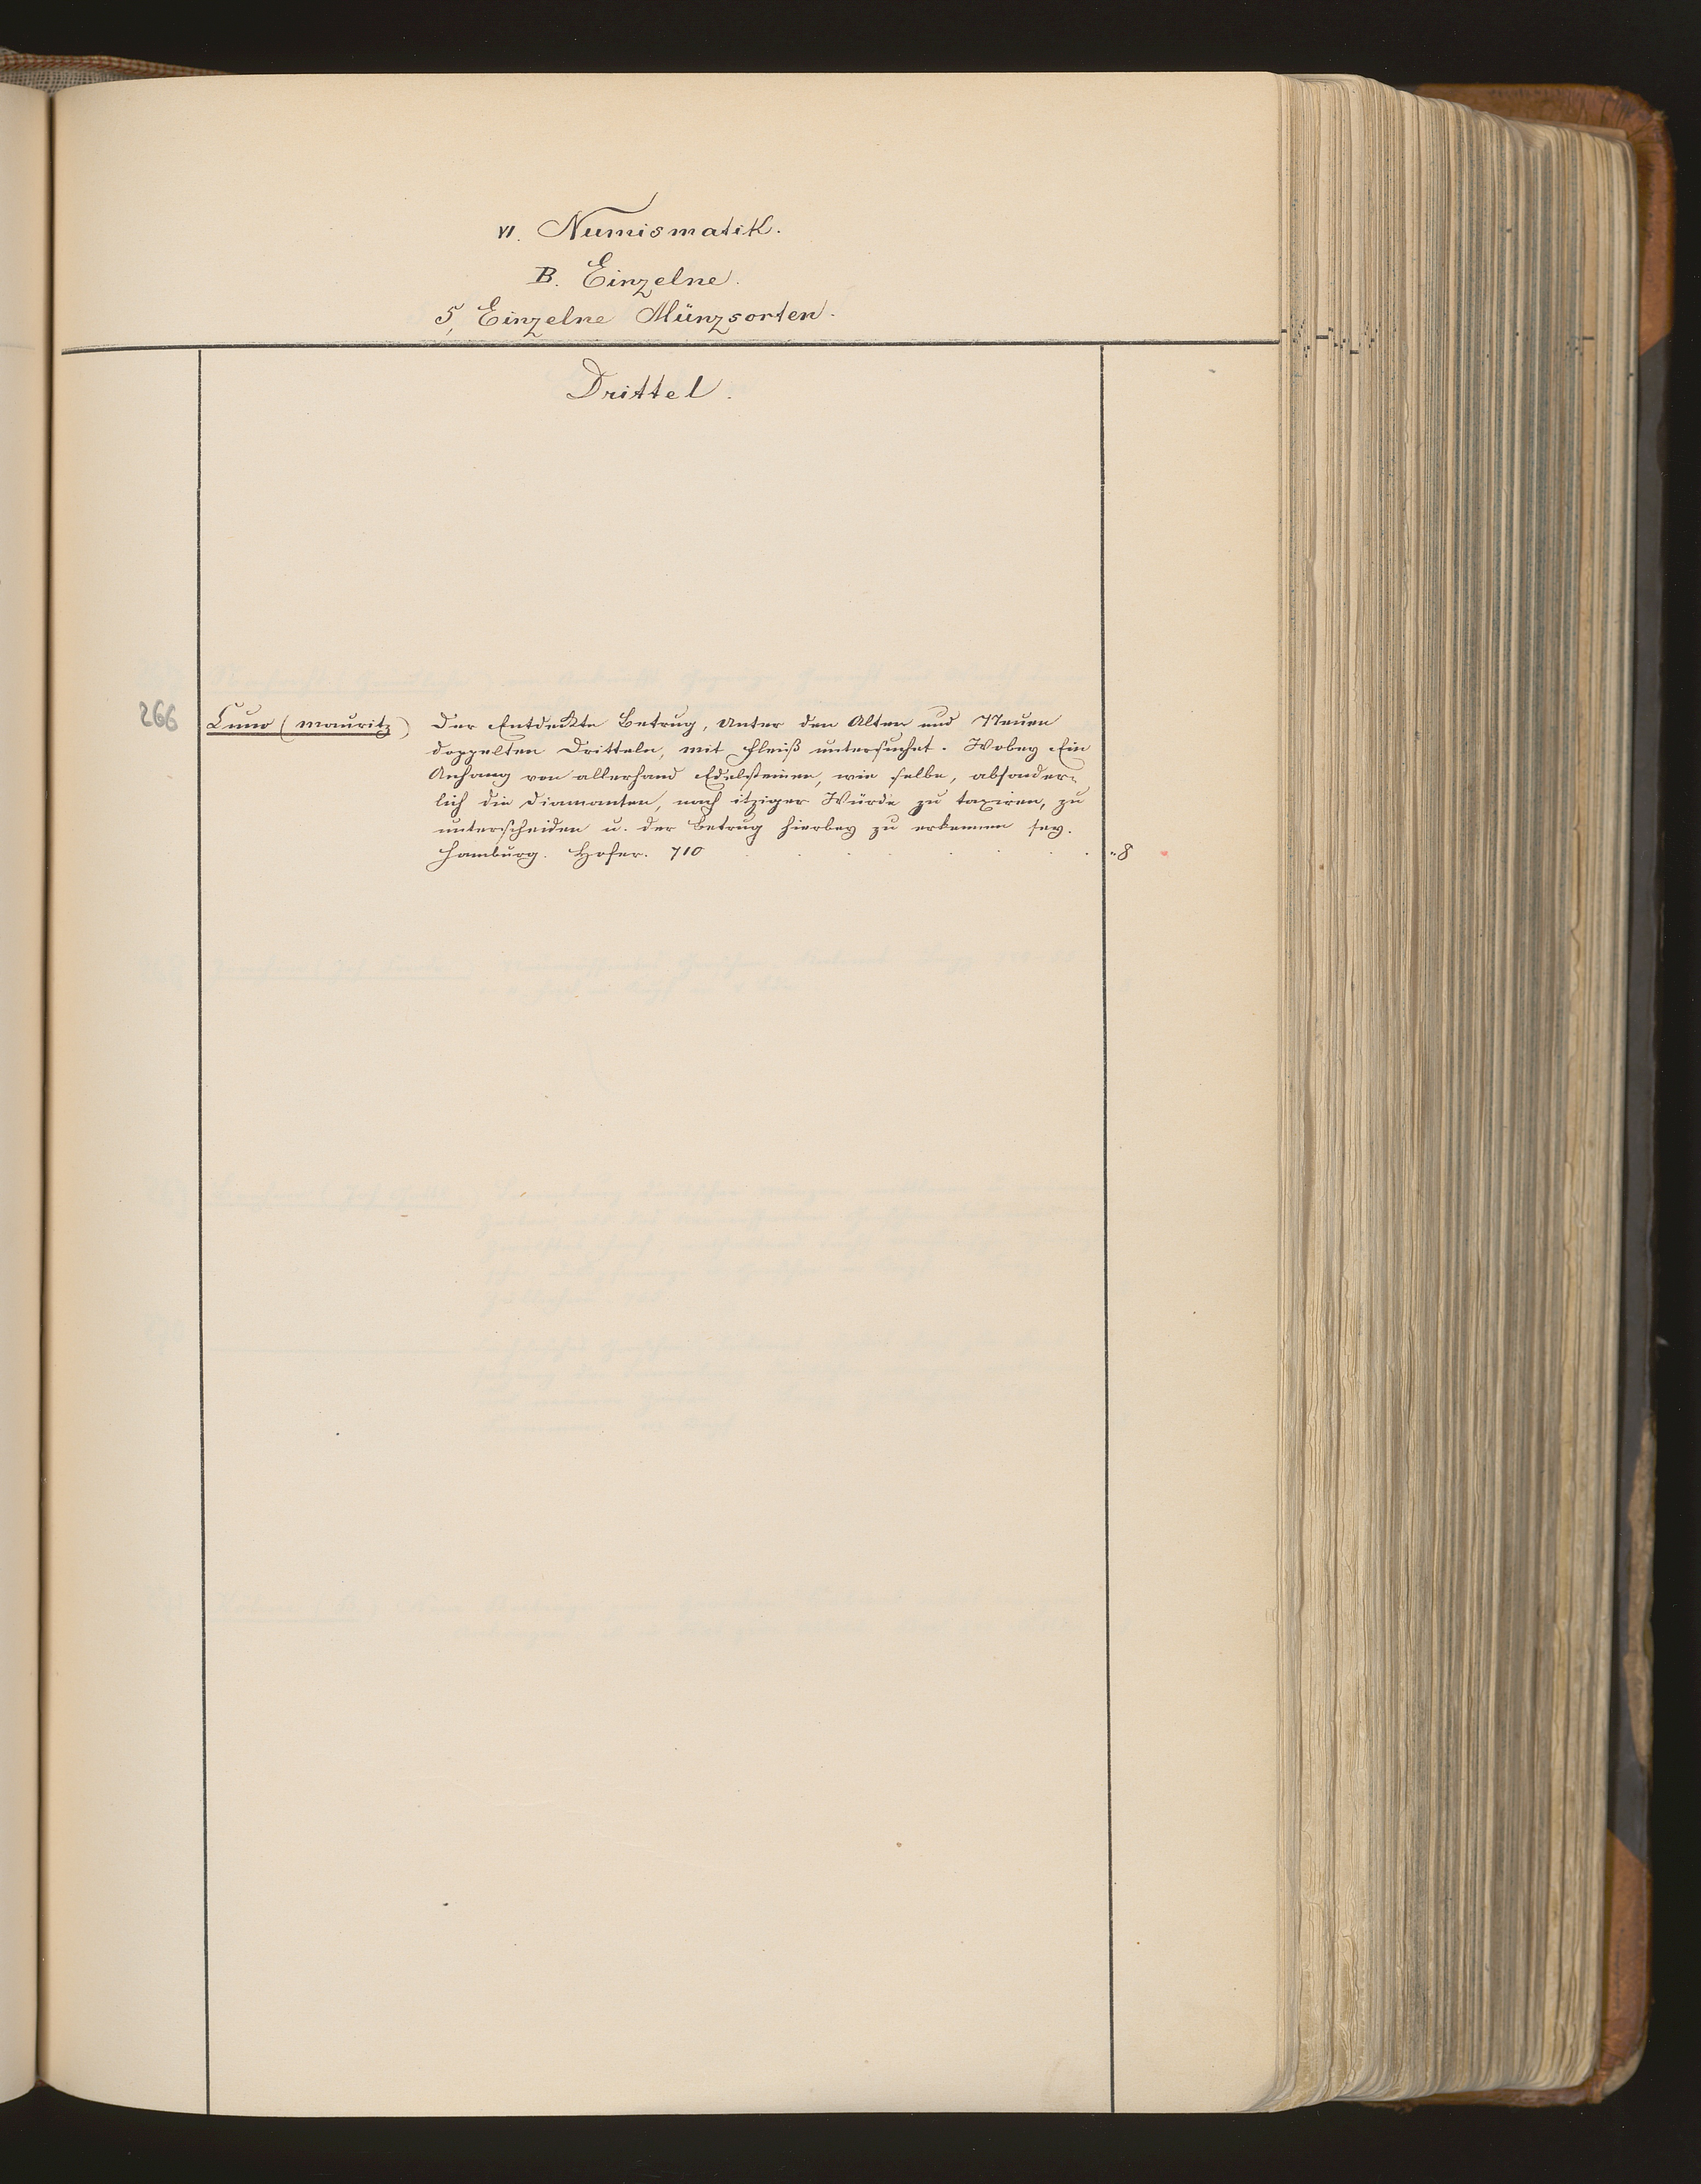 VI. Numismatik.
B. Einzelne.
5, Einzelne Münzsorten.
Drittel.
266 Cuno (Mauritz) Der Entdekte Betrug, Unter den Alten und Neuen
doppelten Dritteln, mit Fleiß untersuchet. Wobey Ein
Anhang von allerhand Edelsteinen, wie selbe, absonder=
lich die Diamanten, nach itziger Würde zu taxiren, zu
unterscheiden u. der Betrug hierbey zu erkennen sey.
Hamburg. Hofer. 710 . . . . . . . . "8